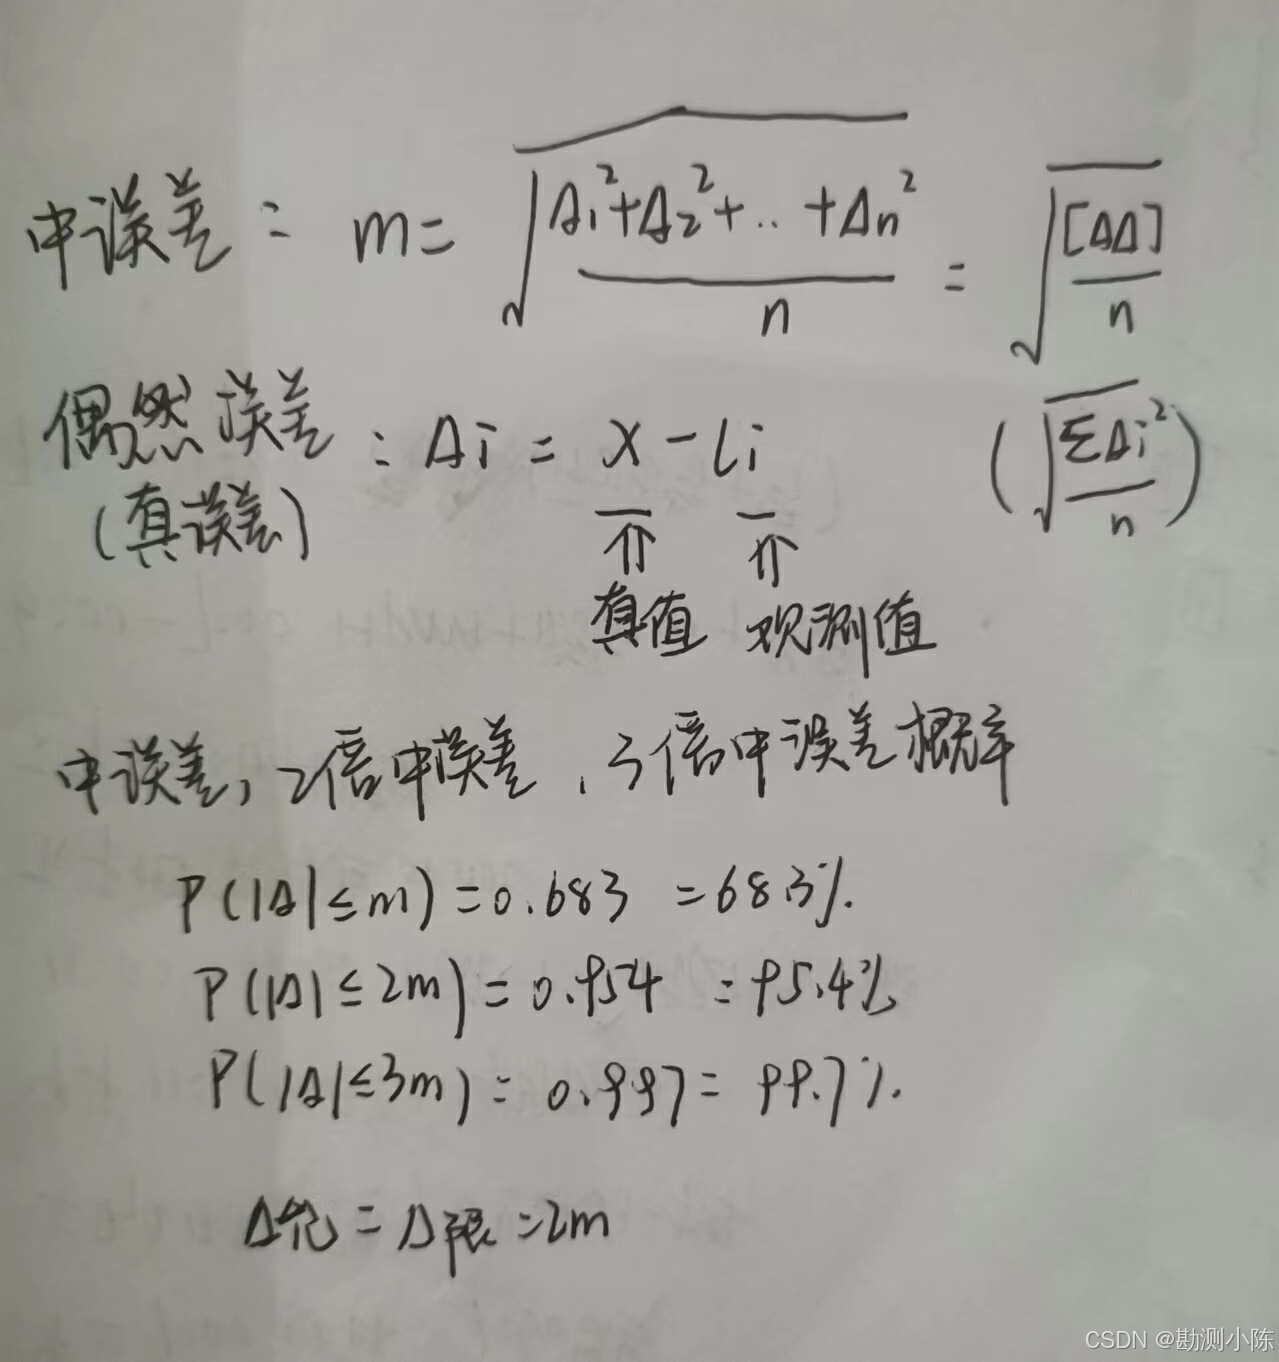 中误差: m = √((Δ₁²+Δ₂²+..+Δn²)/n) = √([ΔΔ]/n)
偶然误差 : Δi = X - Li (√(ΣΔi²/n))
(真误差)
真值 观测值
中误差, 2倍中误差, 3倍中误差概率
P(|Δ|≤m)=0.683 =68.3%.
P(|Δ|≤2m)=0.954 =95.4%
P(|Δ|≤3m)=0.997=99.7%.
Δ允=Δ限=2m
CSDN @勘测小陈